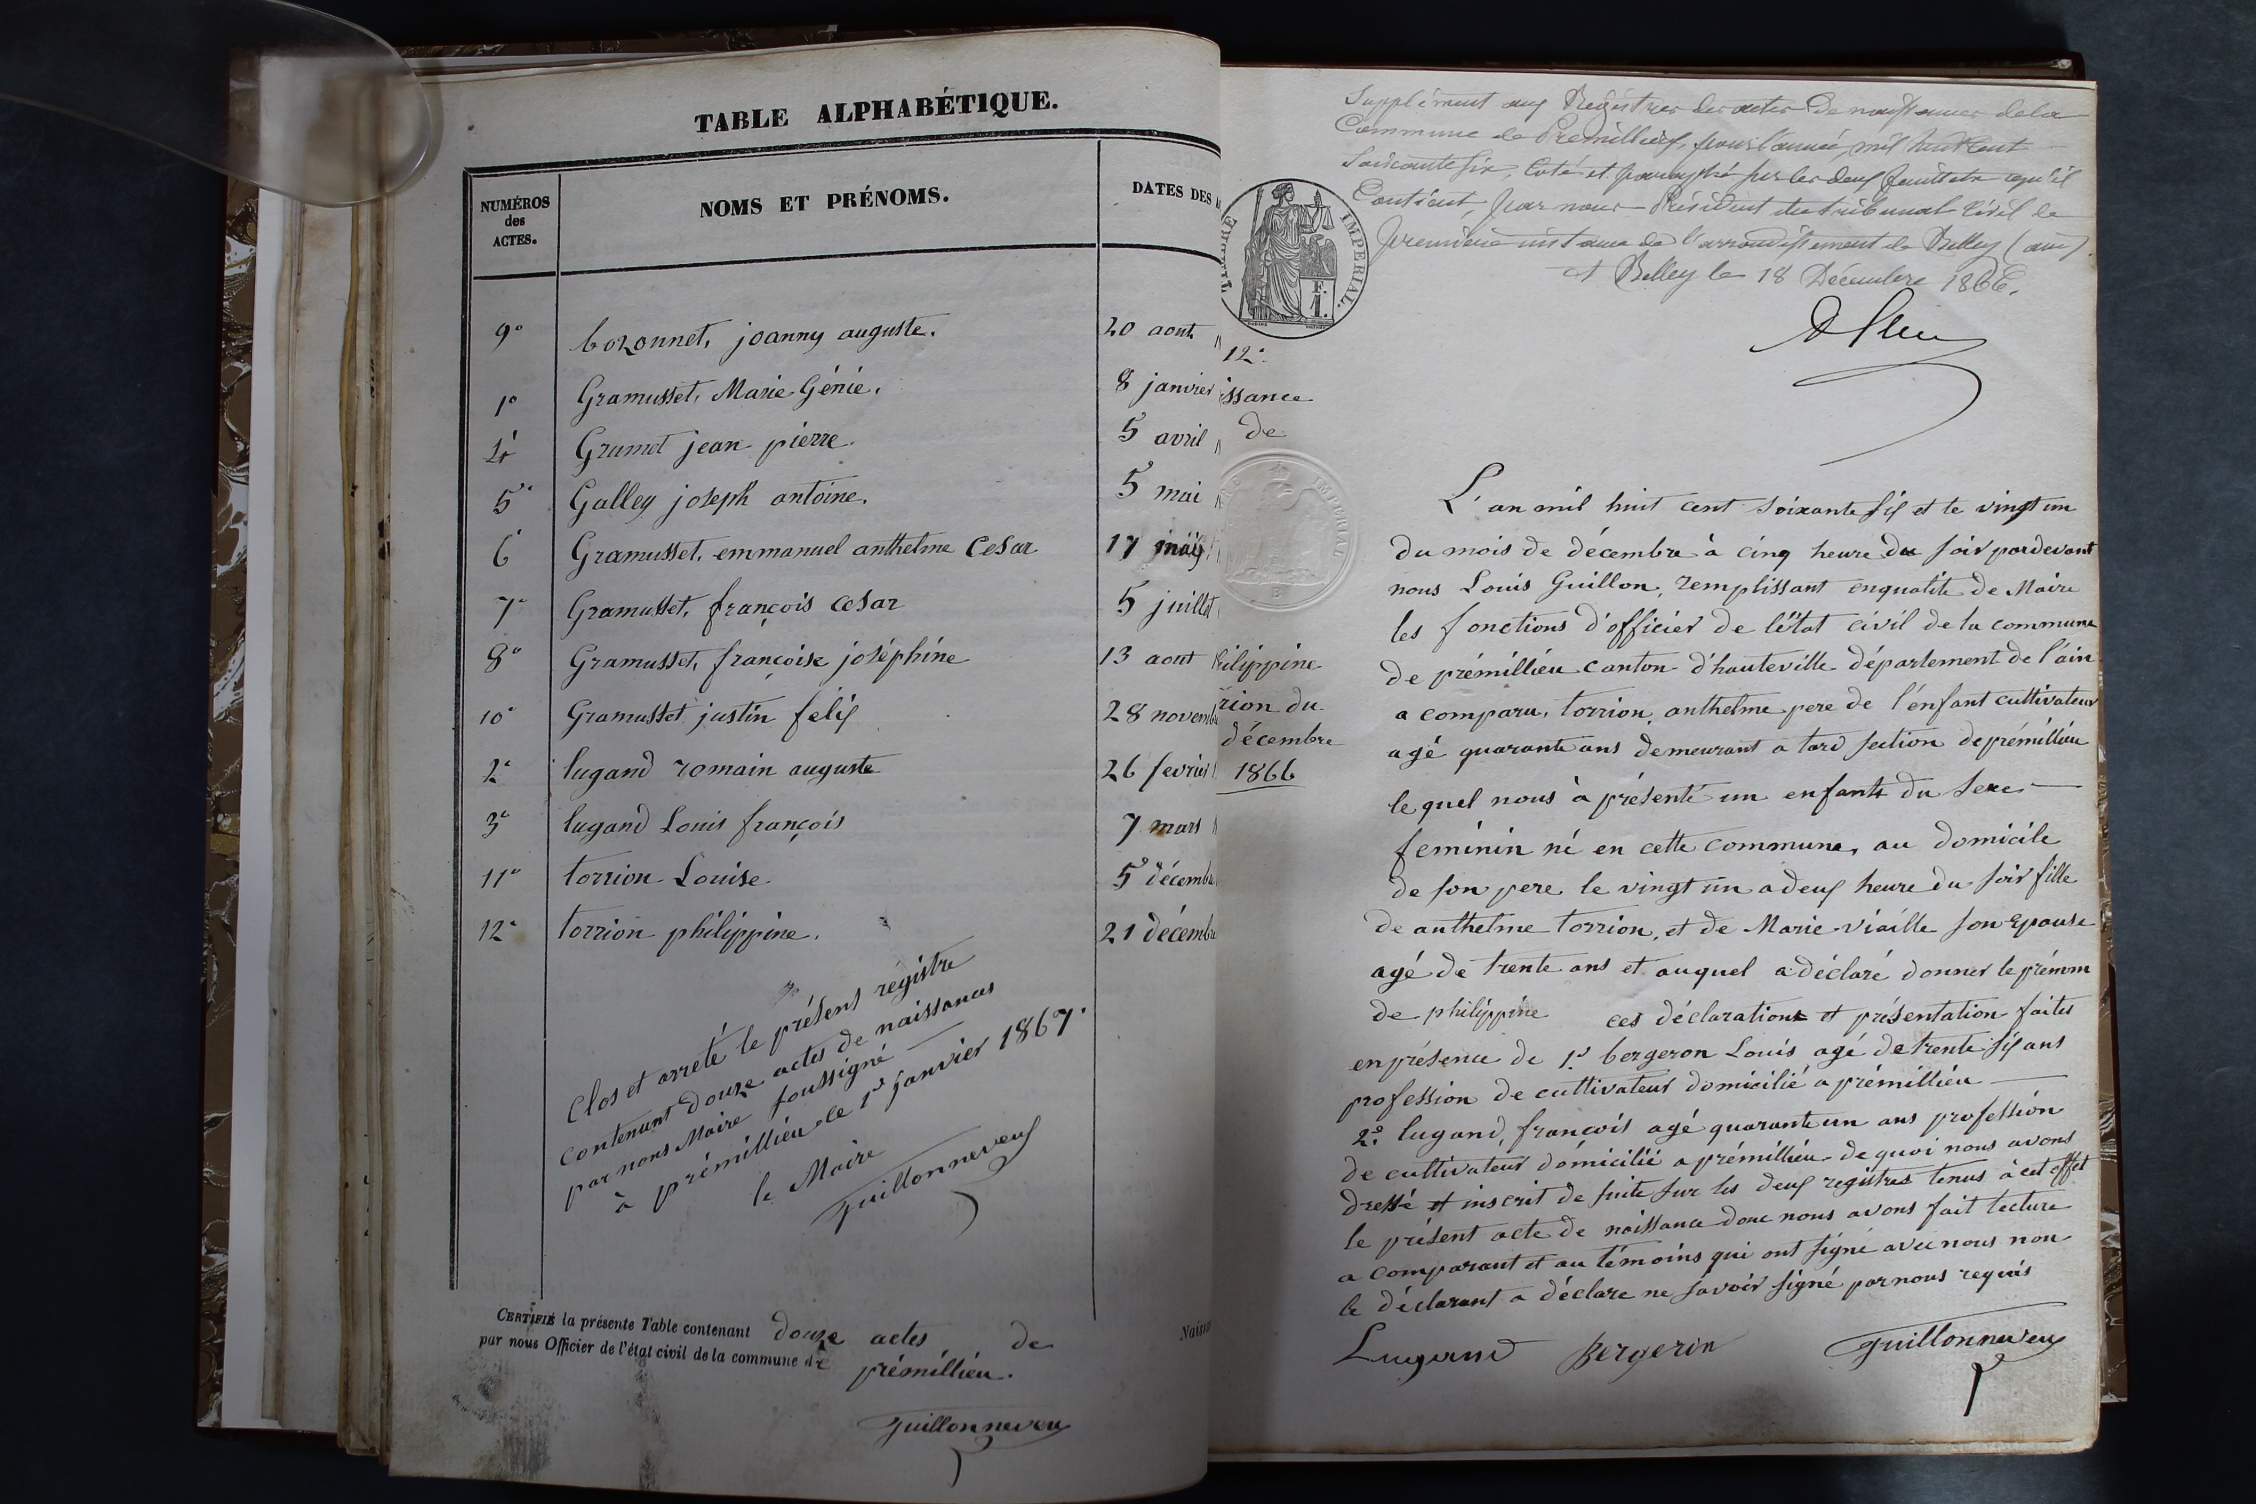 TABLE ALPHABÉTIQUE.
NUMÉROS
des
ACTES.
NOMS ET PRÉNOMS.
DATES DES
9° bozonnet, joanny auguste. 20 aout
1° Gramusset, Marie Génie. 8 janvier
4° Grumet jean pierre. 5 avril
5° Galley joseph antoine. 5 mai
6° Gramusset, emmanuel anthelme Cesar 17 mai
7° Gramusset, françois cesar 5 juillet
8° Gramusset, françoise joséphine 13 aout
10° Gramusset justin felix 28 novemb
2° lugand romain auguste 26 fevrier
3° lugand Louis françois 7 mars
11° torrion Louise 5 décemb
12° torrion philippine. 21 décemb
Clos et arrêté le présent régistre
contenant douze actes de naissances
par nous Maire soussigné
à prémillieu le 1er janvier 1867.
le Maire
Guillonneveu
CERTIFIÉ la présente Table contenant douze actes de
par nous Officier de l'état civil de la commune de
prémillieu.
Guillonneveu
Supplément aux Registres des actes de naissances de la
Commune de Prémillieux, pour l'année mil huit cent
Soixante six, Coté et paraphé sur les deux feuillets qu'il
Contient, par nous Président du tribunal civil de
première instance de l'arrondissement de Belley (ain)
A Belley le 18 Décembre 1866.
TIMBRE IMPERIAL.
F.
1.
12°
issance
de
hilippine
rion du
décembre
1866
L'an mil huit cent soixante six et le vingt un
du mois de décembre à cinq heure du soir pardevant
nous Louis Guillon, remplissant enqualité de Maire
les fonctions d'officier de létat civil de la commune
de prémillieu canton d'hauteville département de l'ain
a comparu, torrion anthelme pere de l'enfant cultivateur
agé quarante ans demeurant a tard section de prémillieu
lequel nous à présenté un enfant du sexe
feminin né en cette commune, au domicile
de son pere le vingt un a deux heure du soir fille
de anthelme torrion, et de Marie viaille son Epouse
agé de trente ans et auquel a déclaré donner le prénom
de philippine ces déclarations et présentation faites
en présence de 1° bergeron Louis agé de trente six ans
profession de cultivateur domicilié a prémillieu
2° lugand, françois agé quarante un ans profession
de cultivateur domicilié a prémillieu de quoi nous avons
dressé et inscrit de suite sur les deux registres tenus à cet effet
le présent acte de naissance donc nous avons fait lecture
a comparant et au témoins qui ont signé avec nous non
le déclarant a déclare ne savoir signé par nous requis
Lugand Bergeron Guillonneveu